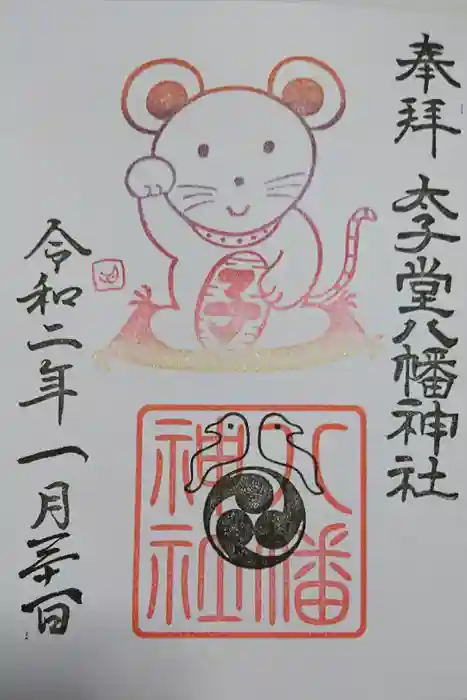 奉拝 太子堂八幡神社
子
八幡
神社
令和二年 一月三十一日